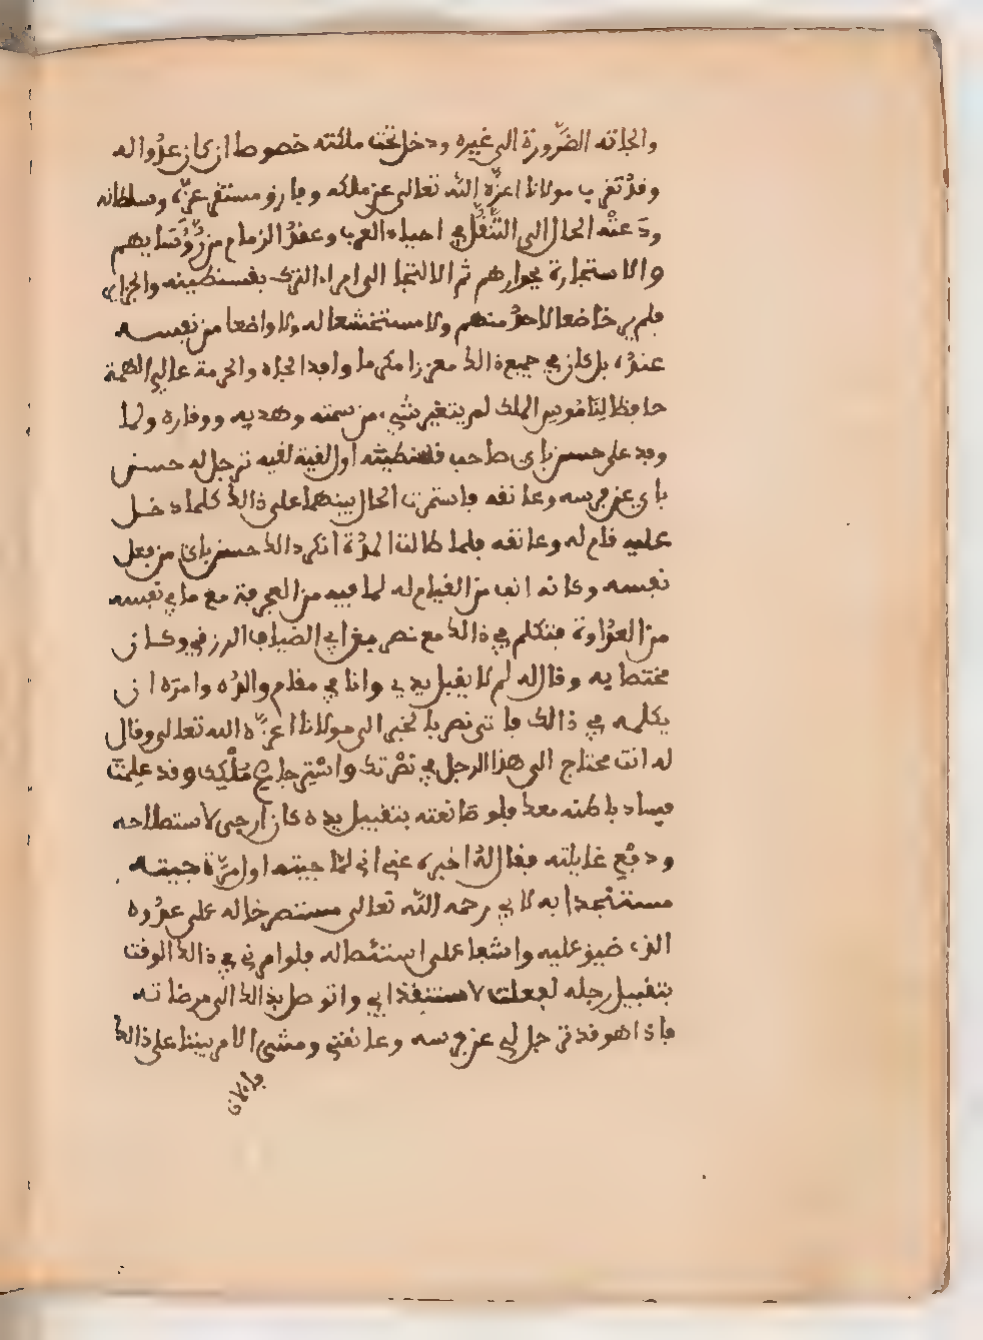 والجاته الضّرورة الى غيره ودخل تحت ملكته خصوصا ان كان عدوا له
وقد تغرب مولانا اعزّه الله تعالى عن ملكه وفارق مستقر عزّه وسلطانه
ودَعتْه الحال الى التّنقّل في احياء العرب وعقد الزمام من رُؤسَايهم
والاستجارة بجوارهم ثم الالتجا الى امراء الترك بقسنطينه والجزاير
فلم ير خاضعا لاحد منهم ولا مستخشعا له ولا واضعا من نفسه
عنده بل كان في جميع ذالك معززا مكرما وافدا الجاه والحرمة عالي الهمة
حافظا لِنَامُوس الملك لم يتغير شيء من سمته وهديه ووقاره ولما
وفد على حسن باي صاحب قسنطينه اول لقية لقيه ترجل له حسن
باي عن فرسه وعانقه فاستمرت الحال بينهما على ذالك كلما دخل
عليه قام له وعانقه فلما طالت المدّة انكر ذالك حسن باي من فعل
نفسه وكانه انف من القيام له لما فيه من العجرفة مع ما في نفسه
من العداوة فتكلم في ذالك مع نصر ميغرابي الضياف الرزقي وكان
مختصا به وقال له لم لا يقبل يدي وانا في مقام والده وامره ان
يكلمه في ذالك فاتى نصر بالخبر الى مولانا اعزّه الله تعالى وقال
له انت محتاج الى هذا الرجل في نصْرتك واسْترجاع مُلْكِك وقد علمتَ
فساد باطنه معك فلو صانعته بتقبيل يده كان ارجى لاستصلاحه
ودفْعِ غايلته فقال لهُ اخبره عني اني لمّا جيته اول مرّة جيته
مستنجدا به لابي رحمه الله تعالى مستنصرخا له على عدوه
الذي ضيق عليه واشفا على استئصاله فلو امرني في ذالك الوقت
بتقبيل رجله لفعلت لاستنقذ ابي واتوصل بذالك الى مرضاته
فاذا هو قد ترجل لي عن فرسه وعانقني ومشى الامر بيننا على ذالك
فالان